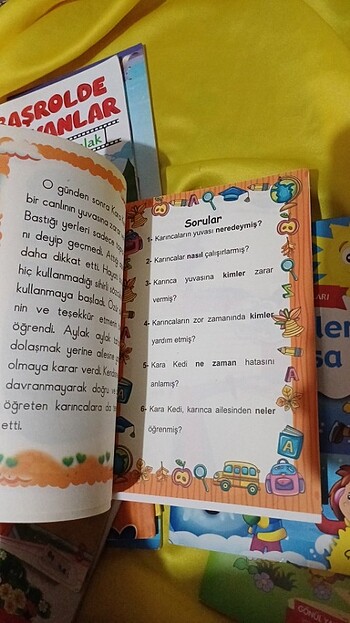 BAŞROLDE
O günden sonra Kara K
bir canlının yuvasına zarar
Bastığı yerleri sadece
nı deyip geçmedi. Attığı
daha dikkat etti. Hayatı
hiç kullanmadığı sihirli sözc
kullanmaya başladı. Özür
nin ve teşekkür etmenin
öğrendi. Aylak aylak
dolaşmak yerine ailesine
olmaya karar verdi. Kendini
davranmayarak doğru ve
öğreten karıncalara da
etti.
Sorular
1- Karıncaların yuvası neredeymiş?
2- Karıncalar nasıl çalışırlarmış?
3- Karınca yuvasına kimler zarar
vermiş?
4- Karıncaların zor zamanında kimler
yardım etmiş?
5- Kara Kedi ne zaman hatasını
anlamış?
6- Kara Kedi, karınca ailesinden neler
öğrenmiş?
A
GÖNÜL